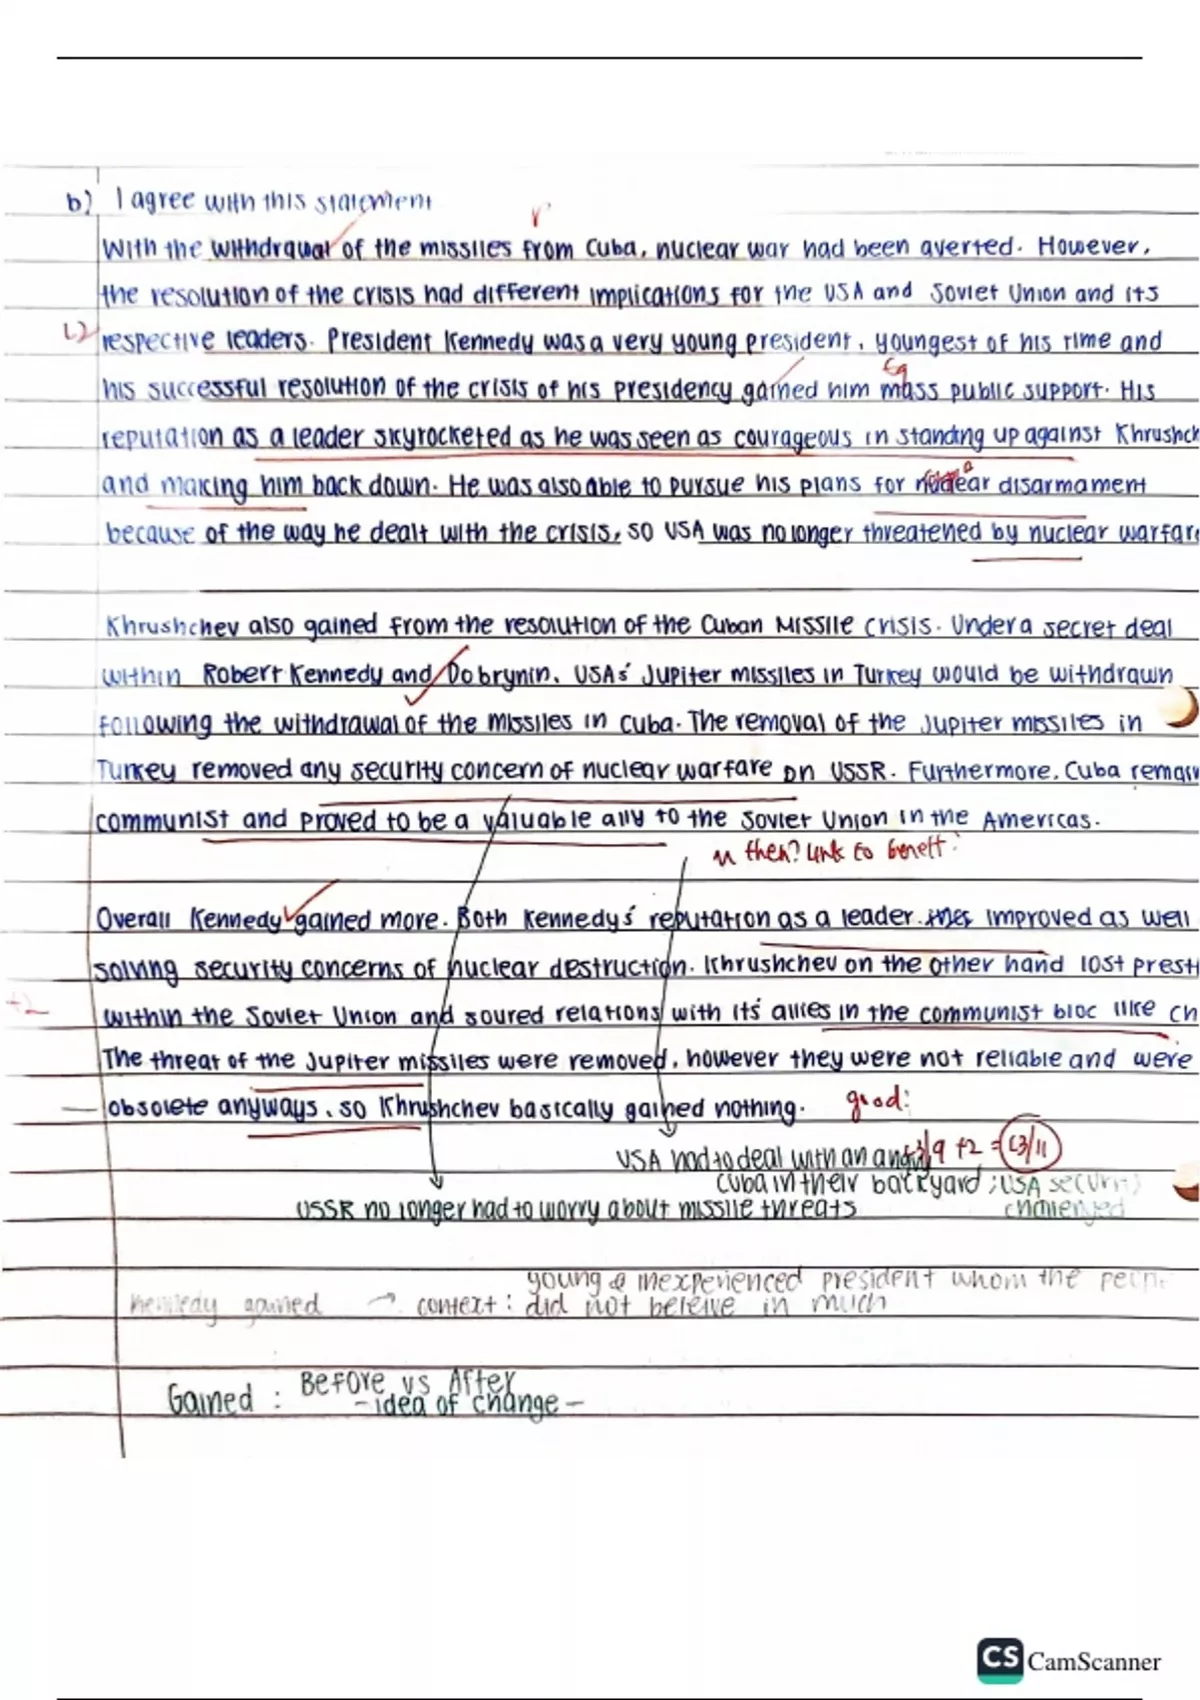 b) I agree with this statement
With the withdrawal of the missiles from Cuba, nuclear war had been averted. However,
the resolution of the crisis had different implications for the USA and Soviet Union and its
L2 respective leaders. President Kennedy was a very young president, youngest of his time and
his successful resolution of the crisis of his presidency gained him mass public support. His
reputation as a leader skyrocketed as he was seen as courageous in standing up against Khrushch
and making him back down. He was also able to pursue his plans for nuclear disarmament
because of the way he dealt with the crisis, so USA was no longer threatened by nuclear warfare
Khrushchev also gained from the resolution of the Cuban Missile Crisis. Under a secret deal
within Robert Kennedy and Dobrynin, USA's Jupiter missiles in Turkey would be withdrawn
following the withdrawal of the missiles in Cuba. The removal of the Jupiter missiles in
Turkey removed any security concern of nuclear warfare on USSR. Furthermore, Cuba remain
communist and proved to be a valuable ally to the Soviet Union in the Americas.
then? link to benefit
Overall Kennedy gained more. Both Kennedy's reputation as a leader improved as well
solving security concerns of nuclear destruction. Khrushchev on the other hand lost presti
+2 within the Soviet Union and soured relations with its' allies in the communist bloc like ch
The threat of the Jupiter missiles were removed, however they were not reliable and were
obsolete anyways, so Khrushchev basically gained nothing. good!
USA had to deal with an angry /9 +2 = L3/11
Cuba in their backyard; USA security
challenged
USSR no longer had to worry about missile threats
young & inexperienced president whom the peop
Kennedy gained → context: did not beleive in much
Gained : Before vs After
- idea of change -
CS CamScanner